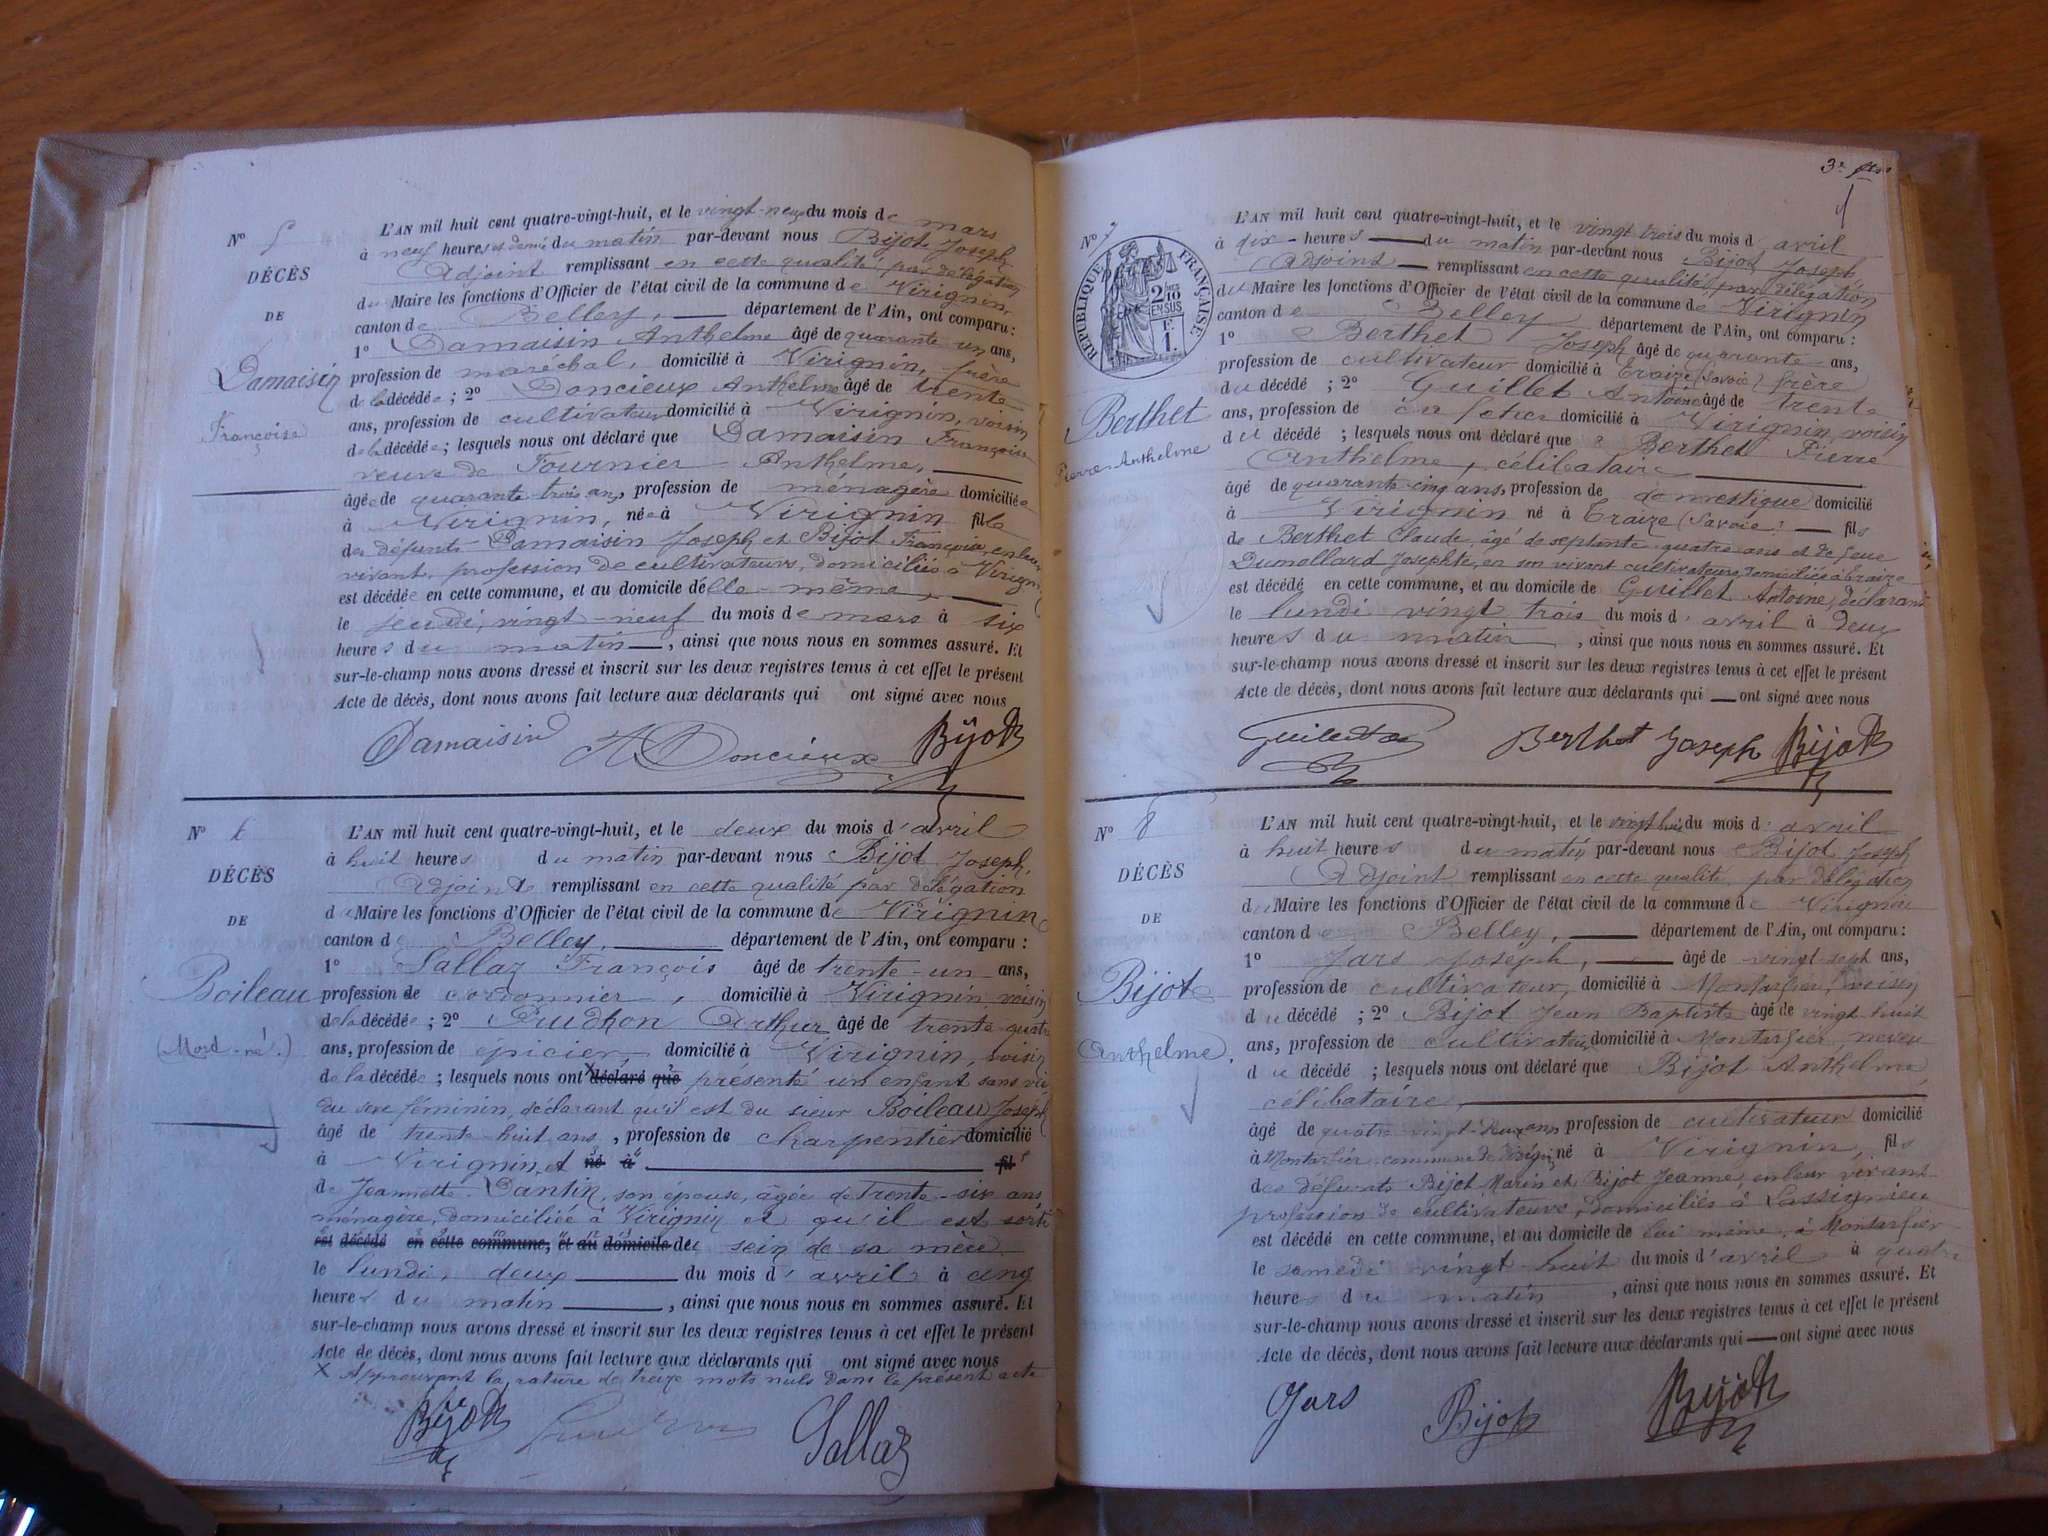 N° 5
DÉCÈS
DE
Damaisin
Françoise
L'AN mil huit cent quatre-vingt-huit, et le vingt-neuf du mois de mars
à neuf heures et demie du matin par-devant nous Bijot Joseph
Adjoint remplissant en cette qualité par délégation
du Maire les fonctions d'Officier de l'état civil de la commune de Virignin,
canton de Belley, département de l'Ain, ont comparu :
1° Damaisin Anthelme âgé de quarante un ans,
profession de maréchal, domicilié à Virignin, frère
de la décédée ; 2° Doncieux Anthelme âgé de trente
ans, profession de cultivateur domicilié à Virignin, voisin
de la décédée ; lesquels nous ont déclaré que Damaisin Françoise
veuve de Fournier Anthelme,
âgée de quarante-trois ans, profession de ménagère domiciliée
à Virignin, née à Virignin fille
des défunts Damaisin Joseph et Bijot Françoise, en leur
vivant, profession de cultivateurs, domiciliés à Virignin
est décédée en cette commune, et au domicile d'elle-même,
le jeudi, vingt-neuf du mois de mars à six
heures du matin, ainsi que nous nous en sommes assuré. Et
sur-le-champ nous avons dressé et inscrit sur les deux registres tenus à cet effet le présent
Acte de décès, dont nous avons fait lecture aux déclarants qui ont signé avec nous
Damaisin A Doncieux Bijot
N° 6
DÉCÈS
DE
Boileau
(Mort-né.)
L'AN mil huit cent quatre-vingt-huit, et le deux du mois d'avril
à huit heures du matin par-devant nous Bijot Joseph,
Adjoint remplissant en cette qualité par délégation
du Maire les fonctions d'Officier de l'état civil de la commune de Virignin
canton de Belley, département de l'Ain, ont comparu :
1° Sallaz François âgé de trente-un ans,
profession de cordonnier, domicilié à Virignin, voisin
de la décédée ; 2° Prudhon Arthur âgé de trente-quatre
ans, profession de épicier, domicilié à Virignin, voisin
de la décédée ; lesquels nous ont X déclaré que présenté un enfant sans vie
du sexe féminin, déclarant qu'il est du sieur Boileau Joseph
âgé de trente-huit ans, profession de charpentier domicilié
à Virignin, et né à fil
de Jeannette Dantin, son épouse, âgée de trente-six ans
ménagère, domiciliée à Virignin et qu'il est sorti
est décédé en cette commune, et au domicile de du sein de sa mère
le lundi, deux du mois d'avril à cinq
heures du matin, ainsi que nous nous en sommes assuré. Et
sur-le-champ nous avons dressé et inscrit sur les deux registres tenus à cet effet le présent
Acte de décès, dont nous avons fait lecture aux déclarants qui ont signé avec nous
X Approuvant la rature de treize mots nuls dans le présent acte
Bijot Sallaz
3e
N° 7
RÉPUBLIQUE FRANÇAISE
2/10 EN SUS
F. 1.
Berthet
Pierre-Anthelme
L'AN mil huit cent quatre-vingt-huit, et le vingt trois du mois d'avril
à dix heures du matin par-devant nous Bijot Joseph
Adjoint remplissant en cette qualité par délégation
du Maire les fonctions d'Officier de l'état civil de la commune de Virignin
canton de Belley département de l'Ain, ont comparu :
1° Berthet Joseph âgé de quarante ans,
profession de cultivateur domicilié à Traize (Savoie) frère
du décédé ; 2° Guillet Antoine âgé de trente
ans, profession de domicilié à Virignin voisin
du décédé ; lesquels nous ont déclaré que Berthet Pierre
Anthelme, célibataire
âgé de quarante-cinq ans, profession de domestique domicilié
à Virignin né à Traize (Savoie) fils
de Berthet Claude, âgé de septante-quatre ans et de feue
Dumollard Josephte, en son vivant cultivateurs domiciliés à Traize
est décédé en cette commune, et au domicile de Guillet Antoine, déclarant
le lundi vingt trois du mois d'avril à deux
heures du matin, ainsi que nous nous en sommes assuré. Et
sur-le-champ nous avons dressé et inscrit sur les deux registres tenus à cet effet le présent
Acte de décès, dont nous avons fait lecture aux déclarants qui ont signé avec nous
Berthet Joseph Bijot
N° 8
DÉCÈS
DE
Bijot
Anthelme.
L'AN mil huit cent quatre-vingt-huit, et le vingt huit du mois d'avril
à huit heures du matin par-devant nous Bijot Joseph
Adjoint remplissant en cette qualité par délégation
du Maire les fonctions d'Officier de l'état civil de la commune de Virignin
canton de Belley, département de l'Ain, ont comparu :
1° Jars Joseph, âgé de vingt-sept ans,
profession de cultivateur, domicilié à Montarfier, voisin
du décédé ; 2° Bijot Jean Baptiste âgé de vingt huit
ans, profession de cultivateur domicilié à Montarfier, neveu
du décédé ; lesquels nous ont déclaré que Bijot Anthelme,
célibataire,
âgé de quatre-vingt-deux ans profession de cultivateur domicilié
à Montarfier commune de Virignin né à Virignin, fils
des défunts Bijot Marin et Bijot Jeanne, en leur vivant
profession de cultivateurs, domiciliés à Lassignieu
est décédé en cette commune, et au domicile de lui même, à Montarfier
le samedi vingt huit du mois d'avril à quatre
heures du matin, ainsi que nous nous en sommes assuré. Et
sur-le-champ nous avons dressé et inscrit sur les deux registres tenus à cet effet le présent
Acte de décès, dont nous avons fait lecture aux déclarants qui ont signé avec nous
Jars Bijot Bijot